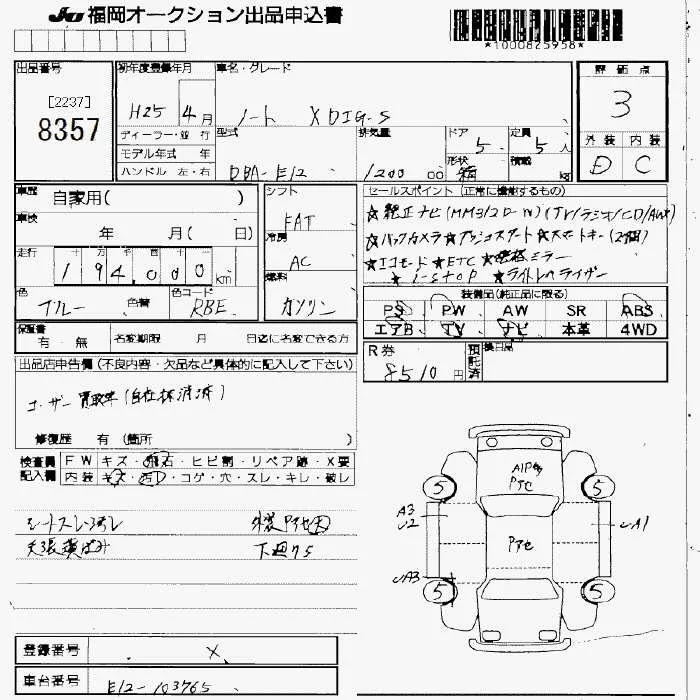 JU 福岡オークション出品申込書
*1000825958*
出品番号
[2237]
8357
初年度登録年月
H25 4月
ディーラー・並 行
モデル年式 年
ハンドル 左・右
車名・グレード
ノート X DIG-S
型式
DBA-E12
排気量
1200 00
ドア
5
形状
箱
定員
5人
積載
kg
評価点
3
外装 内装
D C
車歴
自家用( )
車検
年 月( 日)
走行
十万千百十
194,000km
色
ブルー
色替
色コード
RBE
シフト
FAT
冷房
AC
燃料
ガソリン
セールスポイント (正常に機能するもの)
☆純正ナビ(MM312D-W)(TV/ラジオ/CD/AUX)
☆バックカメラ☆プッシュスタート☆スマートキー(2個)
☆エコモード☆ETC☆
☆i-stop ☆ライトレベライザー
装備品(純正品に限る)
PS PW AW SR ABS
エアB TV ナビ 本革 4WD
保証書
有・無
名変期限 月 日迄に名変できる方
R券
8510円
預託済
後日品
出品店申告欄(不良内容・欠品など具体的に記入して下さい)
ユーザー買取車
修復歴 有(箇所 )
検査員
記入欄
FW キズ・飛石・ヒビ割・リペア跡・X要
内装 キズ・汚D・コゲ・穴・スレ・キレ・破レ
下廻サS
A1P多
Pアセ
Pアセ
5
5
5
5
A3
U2
UA1
UA3
登録番号
X
車台番号
E12-103765